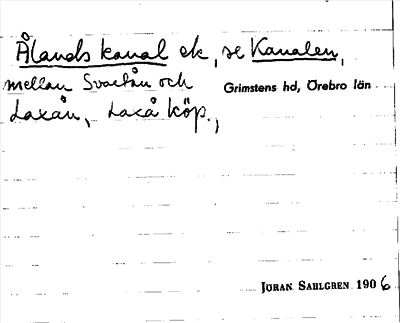 Ålands kanal ek, se Kanalen,
mellan Svartån och
Grimstens hd, Örebro län
Laxån, Laxå köp.,
JÖRAN SAHLGREN 1906